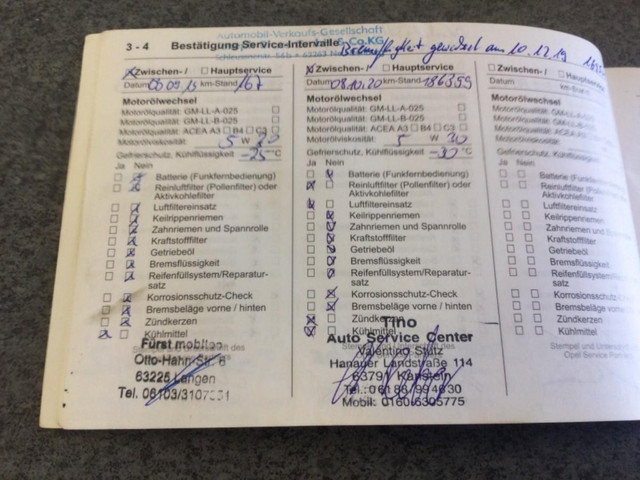 Automobil-Verkaufs-Gesellschaft
Co.KG
3 - 4 Bestätigung Service-Intervalle Bremsflüssigkeit gewechselt am 10.12.19
Zwischen- / Hauptservice
Datum km-Stand
Motorölwechsel
Motorölqualität: GM-LL-A-025
Motorölqualität: GM-LL-B-025
Motorölqualität: ACEA A3 B4 C3
Motorölviskosität: 5 W 30
Gefrierschutz, Kühlflüssigkeit -25 °C
Ja Nein
Batterie (Funkfernbedienung)
Reinluftfilter (Pollenfilter) oder
Aktivkohlefilter
Luftfiltereinsatz
Keilrippenriemen
Zahnriemen und Spannrolle
Kraftstofffilter
Getriebeöl
Bremsflüssigkeit
Reifenfüllsystem/Reparatur-
satz
Korrosionsschutz-Check
Bremsbeläge vorne / hinten
Zündkerzen
Kühlmittel
Fürst mobiton
Otto-Hahn-Str. 6
63225 Langen
Tel. 06103/3107
Zwischen- / Hauptservice
Datum 08.10.20 km-Stand 186359
Motorölwechsel
Motorölqualität: GM-LL-A-025
Motorölqualität: GM-LL-B-025
Motorölqualität: ACEA A3 B4 C3
Motorölviskosität: 5 W 30
Gefrierschutz, Kühlflüssigkeit -30 °C
Ja Nein
Batterie (Funkfernbedienung)
Reinluftfilter (Pollenfilter) oder
Aktivkohlefilter
Luftfiltereinsatz
Keilrippenriemen
Zahnriemen und Spannrolle
Kraftstofffilter
Getriebeöl
Bremsflüssigkeit
Reifenfüllsystem/Reparatur-
satz
Korrosionsschutz-Check
Bremsbeläge vorne / hinten
Zündkerzen
Kühlmittel
Tino
Auto Service Center
Valentino Stutz
Hanauer Landstraße 114
63791 Karlstein
Tel.: 061 86/99 4630
Mobil: 0160-6305775
Zwischen- / Hauptservice
Datum km-Stand
Motorölwechsel
Motorölqualität: GM-LL-A-025
Motorölqualität: GM-LL-B-025
Motorölqualität: ACEA A3
Motorölviskosität:
Gefrierschutz, Kühlflüssigkeit
Ja Nein
Batterie (Funkfernbedienung)
Reinluftfilter (Pollenfilter) oder
Aktivkohlefilter
Luftfiltereinsatz
Keilrippenriemen
Zahnriemen und Spannrolle
Kraftstofffilter
Getriebeöl
Bremsflüssigkeit
Reifenfüllsystem/Reparatur-
satz
Korrosionsschutz-Check
Bremsbeläge vorne / hinten
Zündkerzen
Kühlmittel
Stempel und
Opel Service